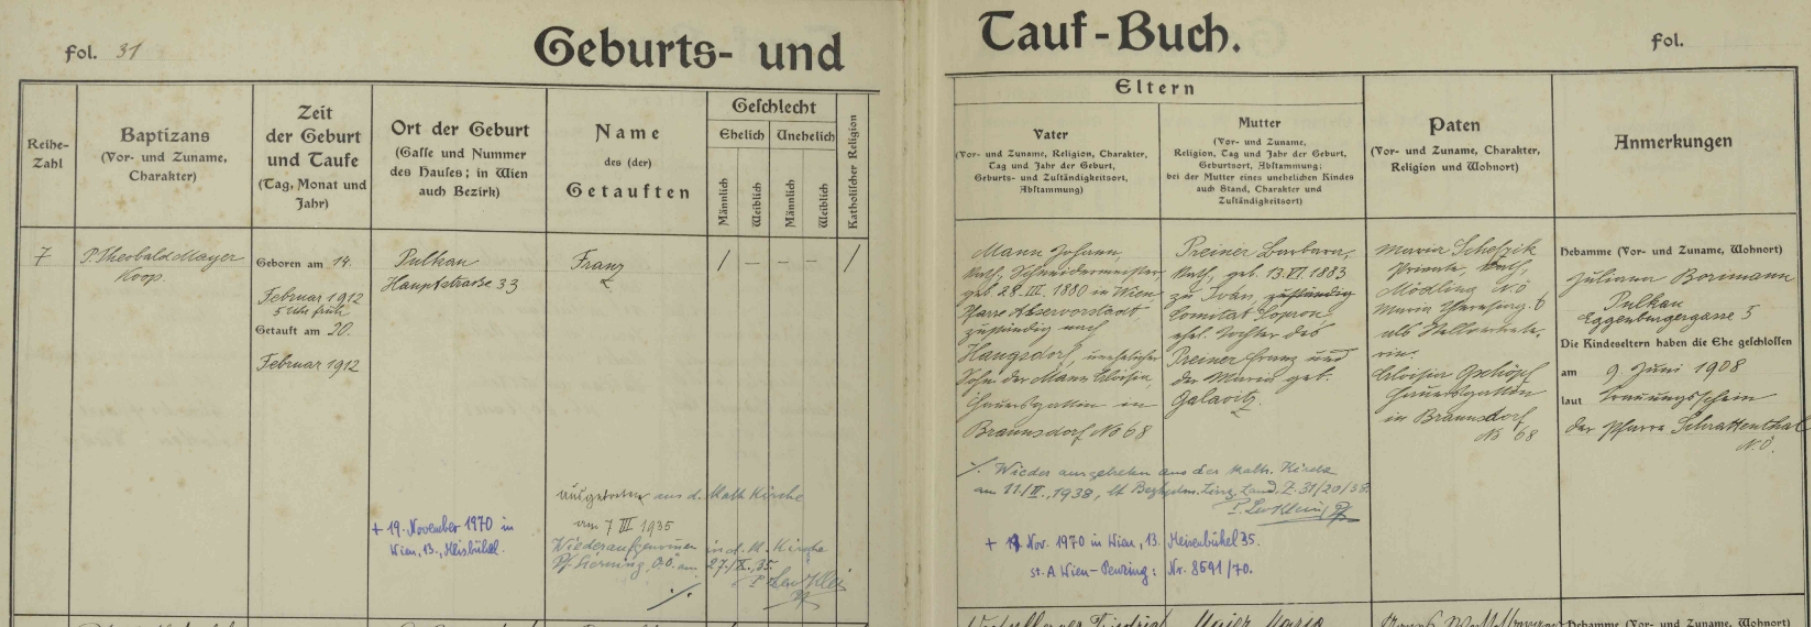 fol. 31
Geburts- und
Tauf-Buch.
fol.
Reihe-
Zahl
Baptizans
(Vor- und Zuname,
Charakter)
Zeit
der Geburt
und Taufe
(Tag, Monat und
Jahr)
Ort der Geburt
(Gasse und Nummer
des Hauses; in Wien
auch Bezirk)
Name
des (der)
Getauften
Geschlecht
Ehelich
Unehelich
Männlich
Weiblich
Männlich
Weiblich
Katholischer Religion
Eltern
Vater
(Vor- und Zuname, Religion, Charakter,
Tag und Jahr der Geburt,
Geburts- und Zuständigkeitsort,
Abstammung)
Mutter
(Vor- und Zuname,
Religion, Tag und Jahr der Geburt,
Geburtsort, Abstammung;
bei der Mutter eines unehelichen Kindes
auch Stand, Charakter und
Zuständigkeitsort)
Paten
(Vor- und Zuname, Charakter,
Religion und Wohnort)
Anmerkungen
7
P. Theobald Mayer
Koop.
Geboren am 14.
Februar 1912
5 Uhr früh
Getauft am 20.
Februar 1912
Pulkau
Hauptstrasse 33
Franz
/ — — — /
ausgetreten aus d. Kath Kirche
am 7 III 1935
Wiederaufgenommen in d. K. Kirche
Pf. O.Ö. am 27./X. 35.
P. Leo Klein
./.
+ 19. November 1970 in
Wien, 13.,
Mann Johann,
Kath., Schneidermeister,
geb. 28. III. 1880 in Wien,
Pfarre Alservorstadt,
zuständig nach
Haugsdorf, unehelicher
Sohn der Mann Aloisia,
Hauersgattin in
Braunsdorf No 68
Preiner Barbara,
Kath., geb. 13. VI. 1883
zu Iván, zuständig
Comitat Sopron
ehel. Tochter des
Preiner Franz und
der Maria geb.
Galavitz.
./. Wieder ausgetreten aus der kath. Kirche
am 11./II., 1938, lt Linz Land, Z. 31/20/38.
P. Leo Klein
+ Nov. 1970 in Wien, 13. Meisenbühel 35.
St. A Wien-Penzing: Nr. 8591/70.
Maria
Private, Kath,
Mödling N.Ö
Maria Theresieng. 6
als Stellvertrete-
rin.
Aloisia Gschöpf
Hauersgattin
in Braunsdorf
No 68
Hebamme (Vor- und Zuname, Wohnort)
Juliana
Pulkau
Eggenburgergasse 5
Die Kindeseltern haben die Ehe geschlossen
am 9. Juni 1908
laut Trauungsschein
der Pfarre Schrattenthal
N.Ö.
Hebamme (Vor- und Zuname, Wohnort)